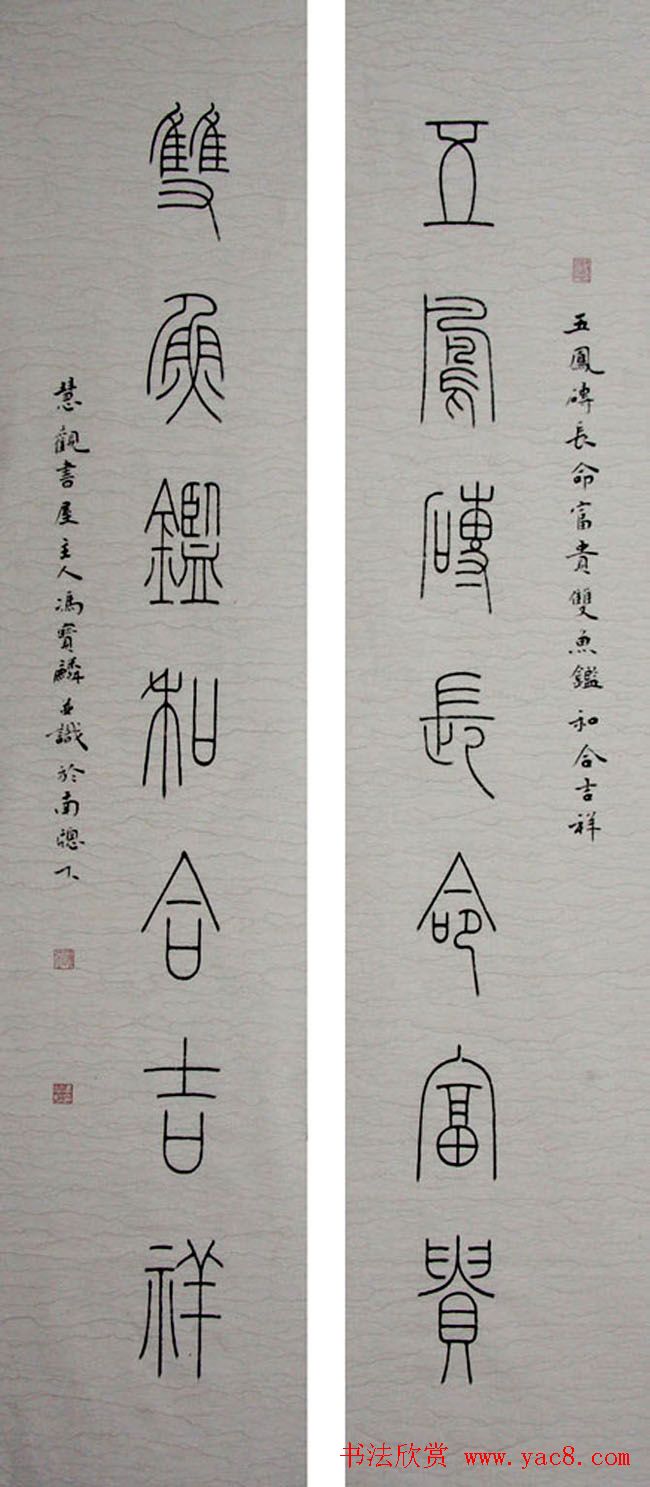 五鳳磚長命富貴
五鳳磚長命富貴雙魚鑑和合吉祥
雙魚鑑和合吉祥
慧觀書屋主人馮寶麟并識於南窗下
书法欣赏 www.yac8.com